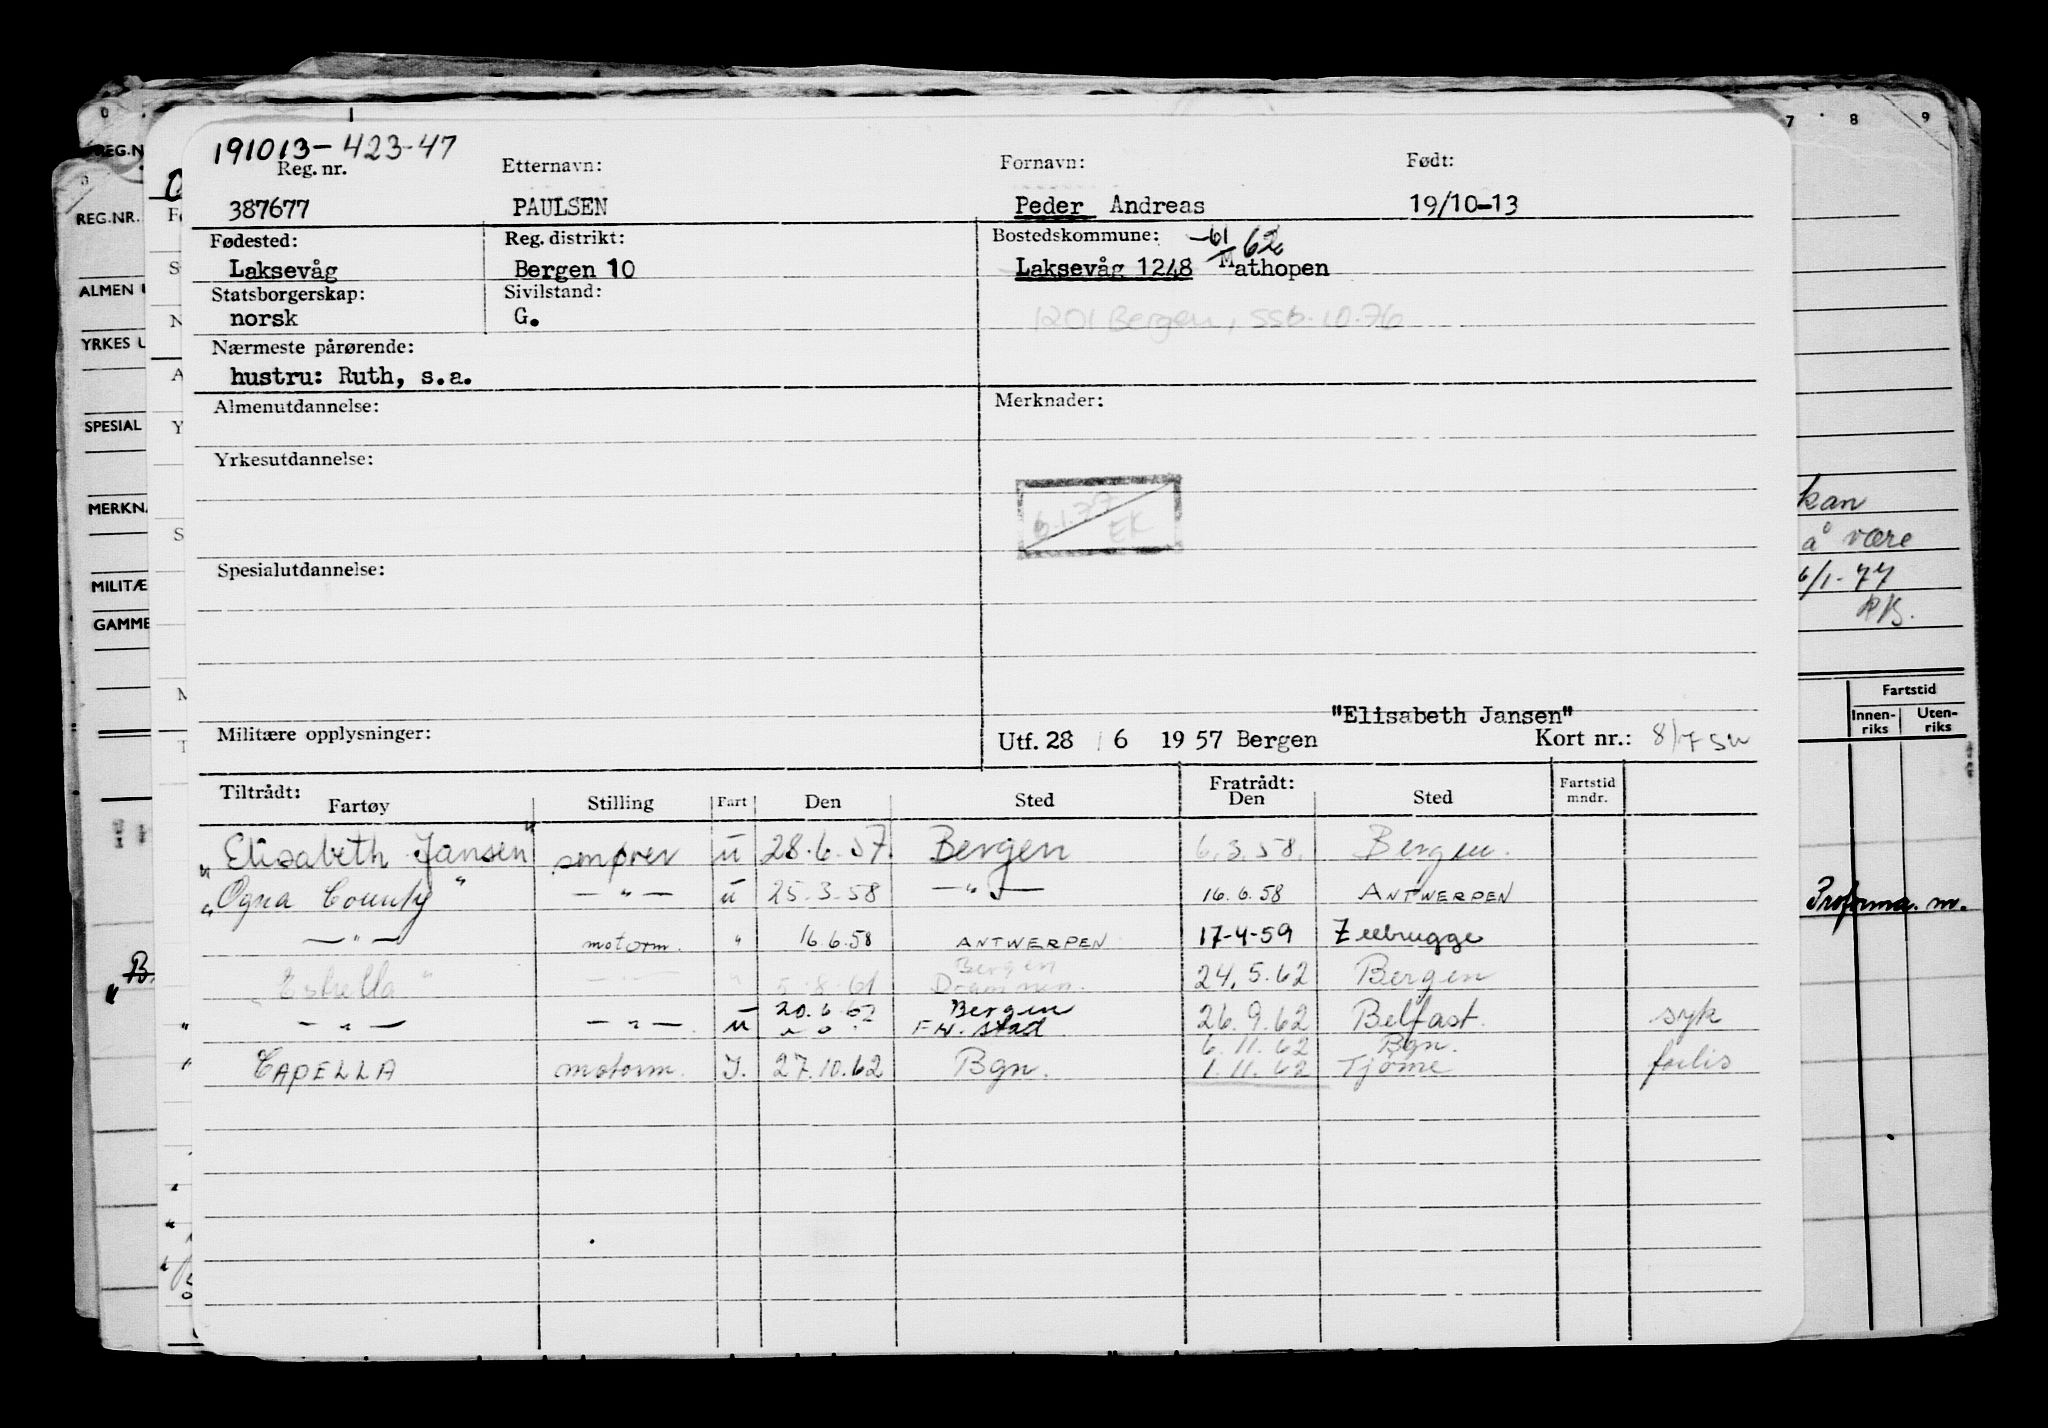 191013-423-47
Reg. nr. Etternavn: Fornavn: Født:
387677 PAULSEN Peder Andreas 19/10-13
Fødested: Reg. distrikt: Bostedskommune: -61 62
Laksevåg Bergen 10 Laksevåg 1248 Mathopen
Statsborgerskap: Sivilstand:
norsk G. 1201 Bergen, SSB.10.76
Nærmeste pårørende:
hustru: Ruth, s.a.
Almenutdannelse: Merknader:
Yrkesutdannelse:
6.1.77
EK
Spesialutdannelse:
"Elisabeth Jansen"
Militære opplysninger: Utf. 28 / 6 19 57 Bergen Kort nr.: 8/7
Tiltrådt: Fartøy Stilling Fart Den Sted Fratrådt: Den Sted Fartstid mndr.
"Elisabeth Jansen" smører u 28.6.57. Bergen 6.3.58. Bergen.
"Ogna County" — " — u 25.3.58 — " — 16.6.58 ANTWERPEN
— " — motorm. " 16.6.58 ANTWERPEN 17-4-59 Zeebrugge
Bergen
"Estrella" — " — " 5.8.61 Drammen. 24.5.62 Bergen
20.6.62 Bergen
— " — — " — u " " " Fr. stad 26.9.62 Belfast. syk
6.11.62 Bgn.
CAPELLA motorm. I. 27.10.62 Bgn. 1.11.62 Tjøme forlis
REG.NR.
ALMEN
YRKES
SPESIAL
MERKNA
MILITÆ
GAMME
7 8 9
kan
å være
6/1-77
Fartstid
Innen-riks Uten-riks
Proforma. m.
"B